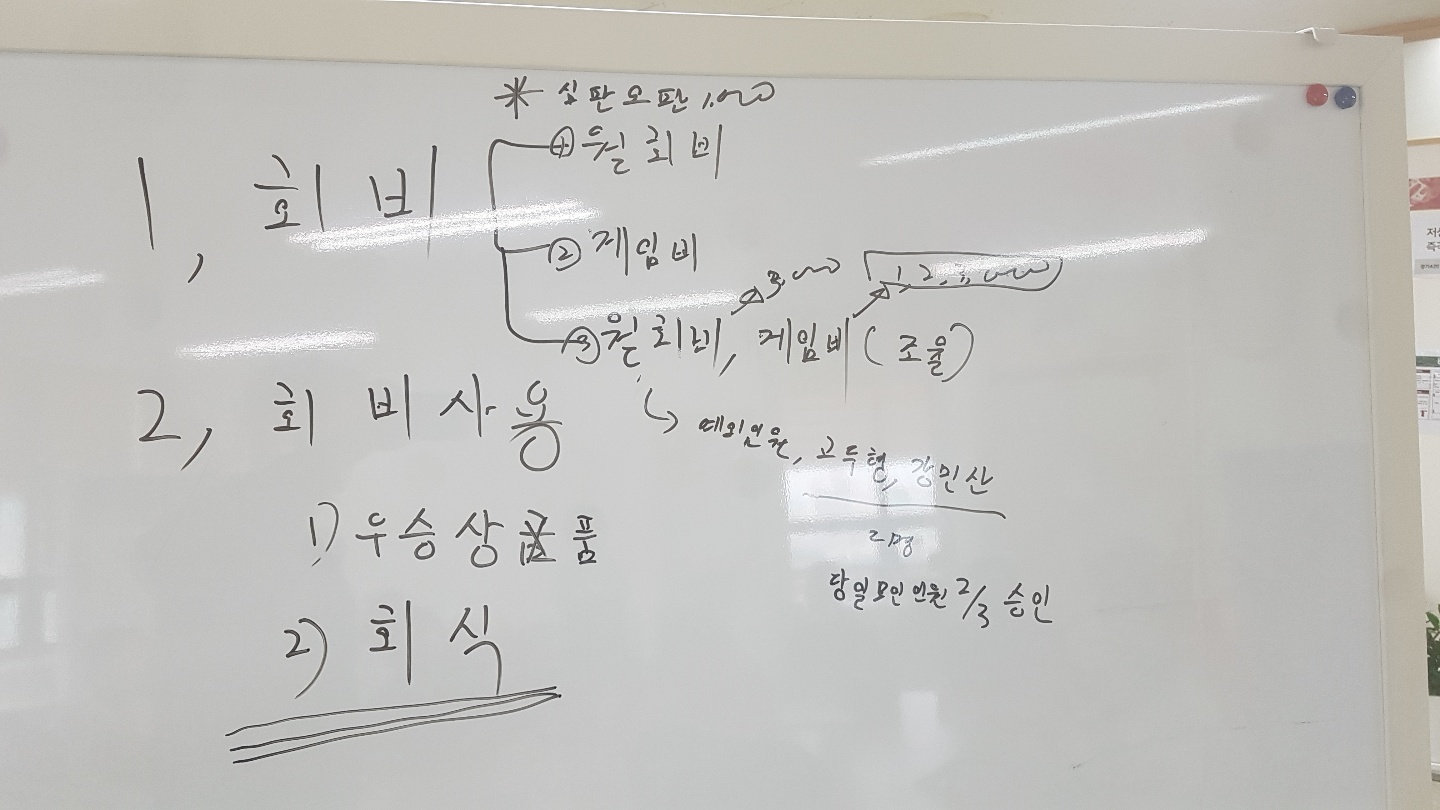 * 심판오판 1,000
1, 회비
① 월회비
② 게임비
③ 월회비, 게임비 (조율)
3,000
1, 2, 3,000
2, 회비사용
→ 예외인원, 고두형, 강민산
2명
당일모인인원 2/3 승인
1) 우승상품
2) 회식
저상
즉각